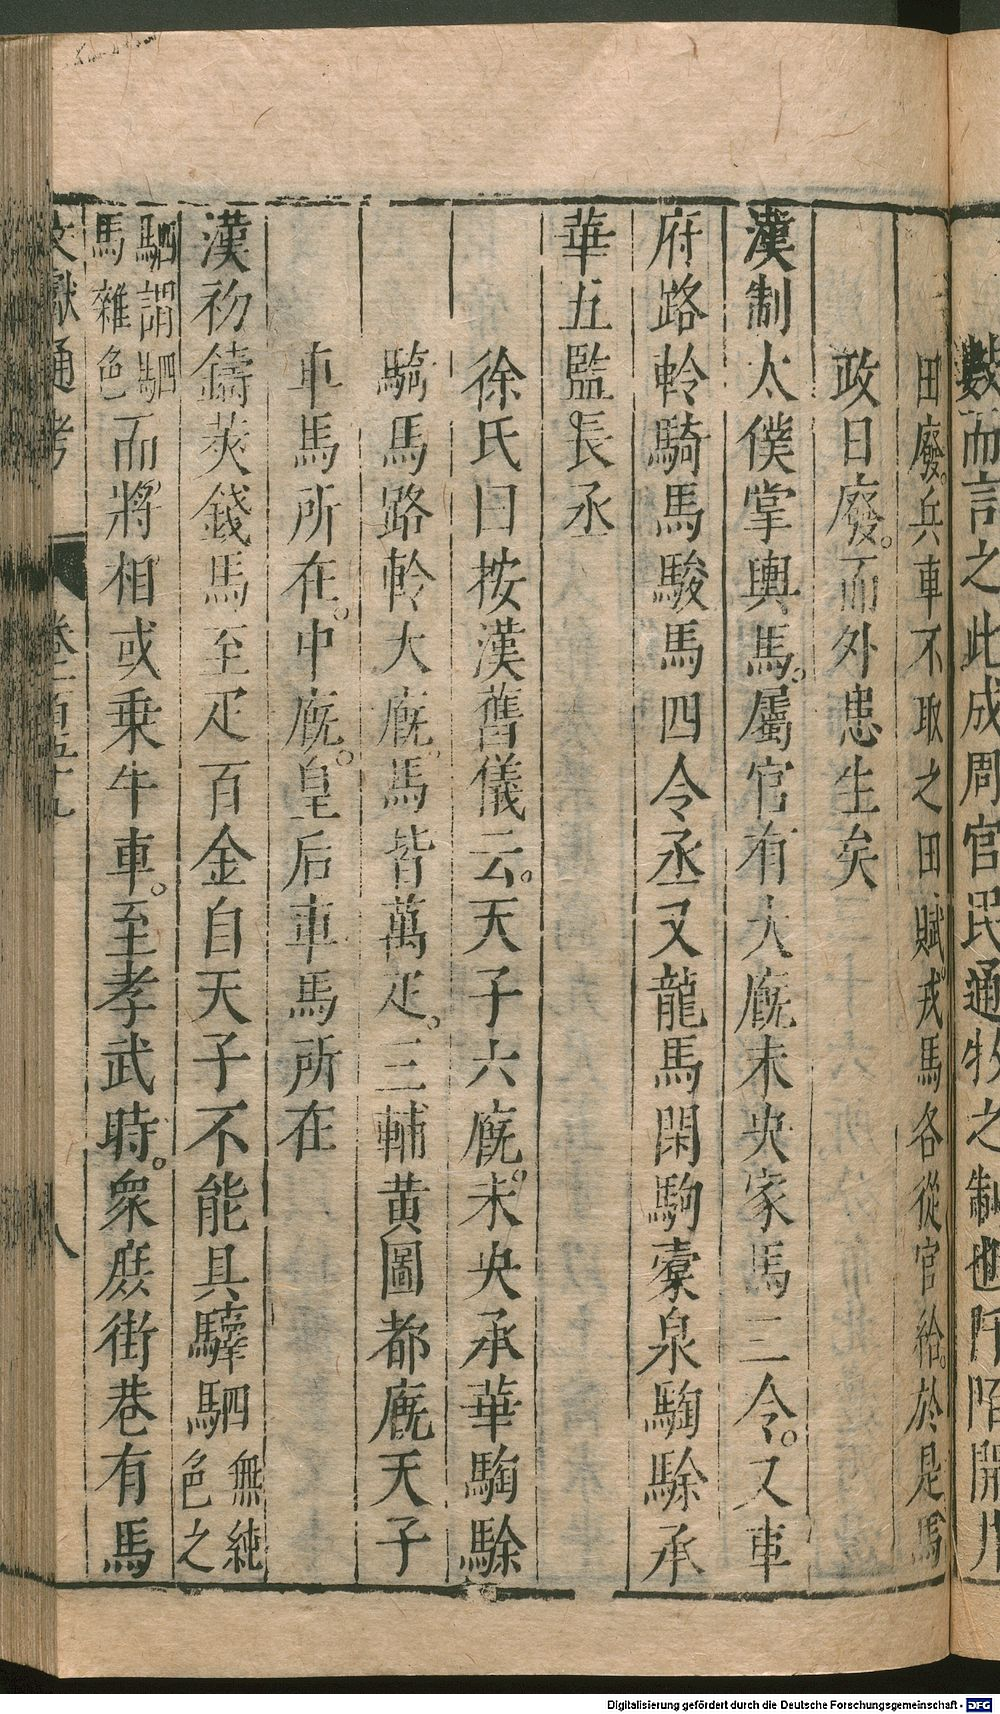 數而言之此成周官民通牧之制也阡陌開井
田廢。兵車不取之田賦。戎馬各從官給。於是馬
政日廢。而外患生矣
漢制太僕掌輿馬。屬官有大廐未央家馬三令。又車
府路軨騎馬駿馬四令丞又龍馬閑駒橐泉騊駼承
華五監。長丞
徐氏曰按漢舊儀云。天子六廐。未央承華騊駼
騎馬路軨大廐。馬皆萬疋。三輔黃圖都廐天子
車馬所在。中廐。皇后車馬所在
漢初鑄莢錢馬至疋百金自天子不能具驛駟無純色之
駟謂駟馬雜色而將相或乗牛車。至孝武時。衆庶街巷有馬
文獻通考 卷一百五十九 八
Digitalisierung gefördert durch die Deutsche Forschungsgemeinschaft - DFG